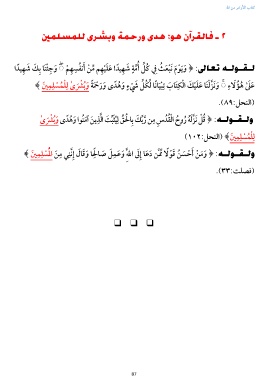 ٢ ـ فالقرآن هو: هدى ورحمة وبشرى للمسلمين
لـقـولـه تعالى: ﴿ وَيَوْمَ نَبْعَثُ فِي كُلِّ أُمَّةٍ شَهِيدًا عَلَيْهِم مِّنْ أَنفُسِهِمْ ۖ وَجِئْنَا بِكَ شَهِيدًا
عَلَىٰ هَٰؤُلَاءِ ۚ وَنَزَّلْنَا عَلَيْكَ الْكِتَابَ تِبْيَانًا لِّكُلِّ شَيْءٍ وَهُدًى وَرَحْمَةً وَبُشْرَىٰ لِلْمُسْلِمِينَ ﴾
(النحل:٨٩).
ولـقـولـه: ﴿ قُلْ نَزَّلَهُ رُوحُ الْقُدُسِ مِن رَّبِّكَ بِالْحَقِّ لِيُثَبِّتَ الَّذِينَ آمَنُوا وَهُدًى وَبُشْرَىٰ
لِلْمُسْلِمِينَ﴾ (النحل:١٠٢)
ولـقـولـه: ﴿ وَمَنْ أَحْسَنُ قَوْلًا مِّمَّن دَعَا إِلَى اللَّهِ وَعَمِلَ صَالِحًا وَقَالَ إِنَّنِي مِنَ الْمُسْلِمِينَ ﴾
(فصلت:٣٣).
87